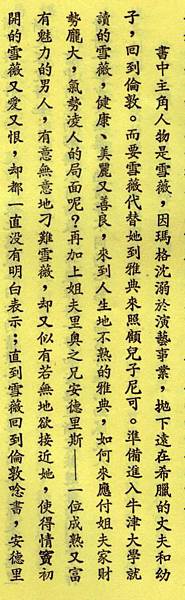 書中主角人物是雪薇，因瑪格沈溺於演藝事業，拋下遠在希臘的丈夫和幼
子，回到倫敦。而要雪薇代替她到雅典來照顧兒子尼可。準備進入牛津大學就
讀的雪薇，健康、美麗又善良，來到人生地不熟的雅典，如何來應付姐夫家財
勢龐大，氣勢凌人的局面呢？再加上姐夫里奧之兄安德里斯——一位成熟又富
有魅力的男人，有意無意地刁難雪薇，却又似有若無地欲接近她，使得情竇初
開的雪薇又愛又恨，却都一直沒有明白表示；直到雪薇回到倫敦唸書，安德里